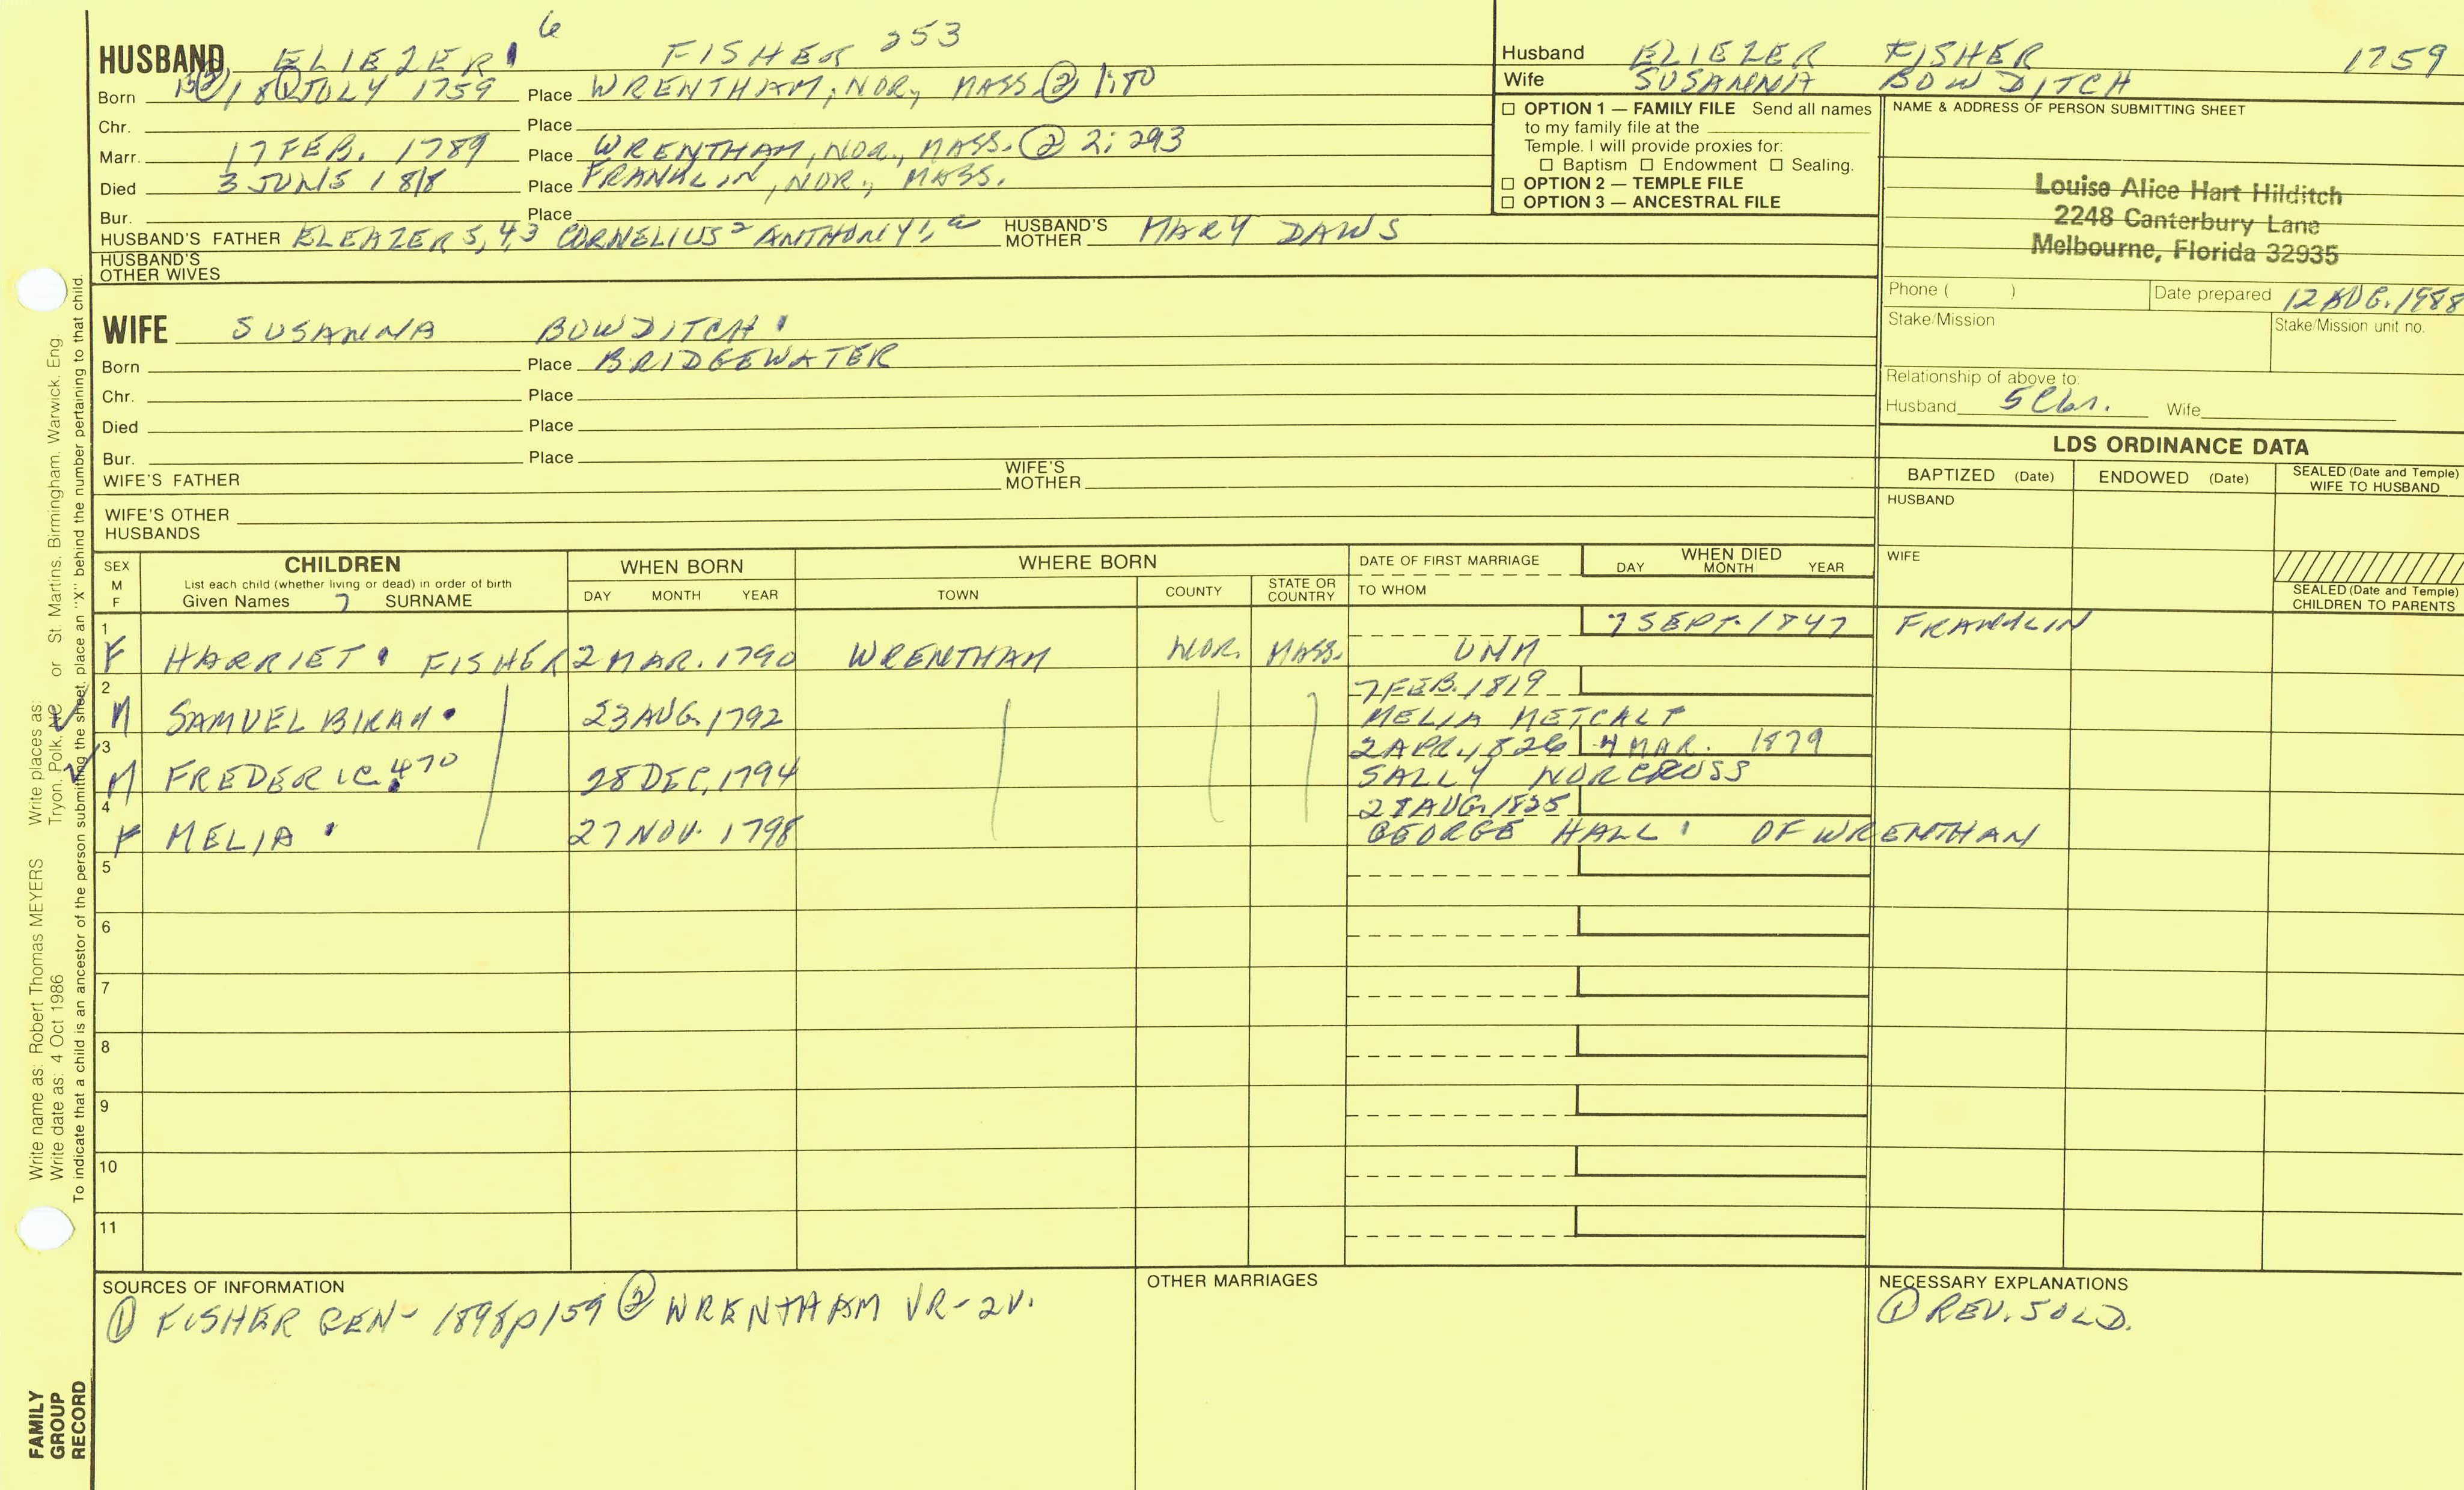 6
HUSBAND ELIEZER FISHER 253
Born 15②/18① JULY 1759 Place WRENTHAM, NOR, MASS ② 1:80
Chr. Place
Marr. 17 FEB. 1789 Place WRENTHAM, NOR., MASS. ② 2:293
Died Place FRANKLIN, NOR., MASS.
Bur. Place
HUSBAND'S FATHER ELEAZER 5, 4, 3 CORNELIUS 2 ANTHONY 1, HUSBAND'S MOTHER MARY DAWS
HUSBAND'S OTHER WIVES
WIFE SUSANNA BOWDITCH
Born Place BRIDGEWATER
Chr. Place
Died Place
Bur. Place
WIFE'S FATHER WIFE'S MOTHER
WIFE'S OTHER HUSBANDS
Husband ELIEZER FISHER 1759
Wife SUSANNA BOWDITCH
☐ OPTION 1 — FAMILY FILE Send all names
to my family file at the
Temple. I will provide proxies for:
☐ Baptism ☐ Endowment ☐ Sealing.
☐ OPTION 2 — TEMPLE FILE
☐ OPTION 3 — ANCESTRAL FILE
NAME & ADDRESS OF PERSON SUBMITTING SHEET
Louise Alice Hart Hilditch
2248 Canterbury Lane
Melbourne, Florida 32935
Phone ( ) Date prepared 12 AUG. 1988
Stake/Mission Stake/Mission unit no.
Relationship of above to:
Husband Wife
LDS ORDINANCE DATA
BAPTIZED (Date) ENDOWED (Date) SEALED (Date and Temple) WIFE TO HUSBAND
HUSBAND
WIFE
SEALED (Date and Temple) CHILDREN TO PARENTS
SEX M F
CHILDREN
List each child (whether living or dead) in order of birth
Given Names 7 SURNAME
WHEN BORN
DAY MONTH YEAR
WHERE BORN
TOWN COUNTY STATE OR COUNTRY
DATE OF FIRST MARRIAGE
TO WHOM
WHEN DIED
DAY MONTH YEAR
1 7 SEPT. 1847 FRANKLIN
F HARRIET FISHER 2 MAR. 1790 WRENTHAM NOR. MASS. UNM
2 7 FEB. 1819
M SAMUEL 23 AUG. 1792 MELIA METCALF
3 2 APR. 1826 4 MAR. 1879
M FREDERIC 470 28 DEC. 1794 SALLY NORCROSS
4 28 AUG. 1825
F MELIA 27 NOV. 1798 GEORGE HALL OF WRENTHAM
5
6
7
8
9
10
11
SOURCES OF INFORMATION
① FISHER GEN- 1898 p159 ② WRENTHAM VR-2V.
OTHER MARRIAGES
NECESSARY EXPLANATIONS
① REV. SOLD.
Write name as: Robert Thomas MEYERS Write places as:
Write date as: 4 Oct 1986 Tryon, Polk, NC or St. Martins, Birmingham, Warwick, Eng.
To indicate that a child is an ancestor of the person submitting the sheet, place an "X" behind the number pertaining to that child.
FAMILY
GROUP
RECORD